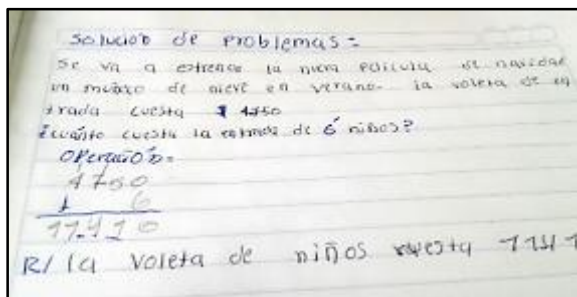 Solución de Problemas=
Se va a estrenar la nueva Pelicula de navidad
un muñeco de nieve en verano. la voleta de en
trada cuesta $ 4750
¿cuánto cuesta la entrada de 6 niños?
Operación=
4750
6
11.410
R/ la voleta de niños cuesta 1141